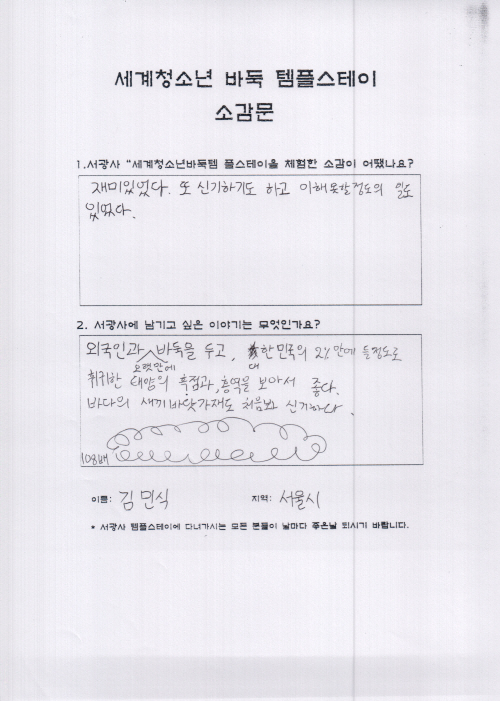 세계청소년 바둑 템플스테이
소감문
1.서광사 "세계청소년바둑템 플스테이을 체험한 소감이 어땠나요?
재미있었다. 또 신기하기도 하고 이해못할정도의 일도
있었다.
2. 서광사에 남기고 싶은 이야기는 무엇인가요?
외국인과 바둑을 두고, 한민국의 2%안에 들정도로
오랫만에 대
휘귀한 태양의 흑점과, 홍염을 보아서 좋다.
바다의 새끼바닷가재도 처음봐 신기하다.
108배
이름: 김민식 지역: 서울시
* 서광사 템플스테이에 다녀가시는 모든 분들이 날마다 좋은날 되시기 바랍니다.